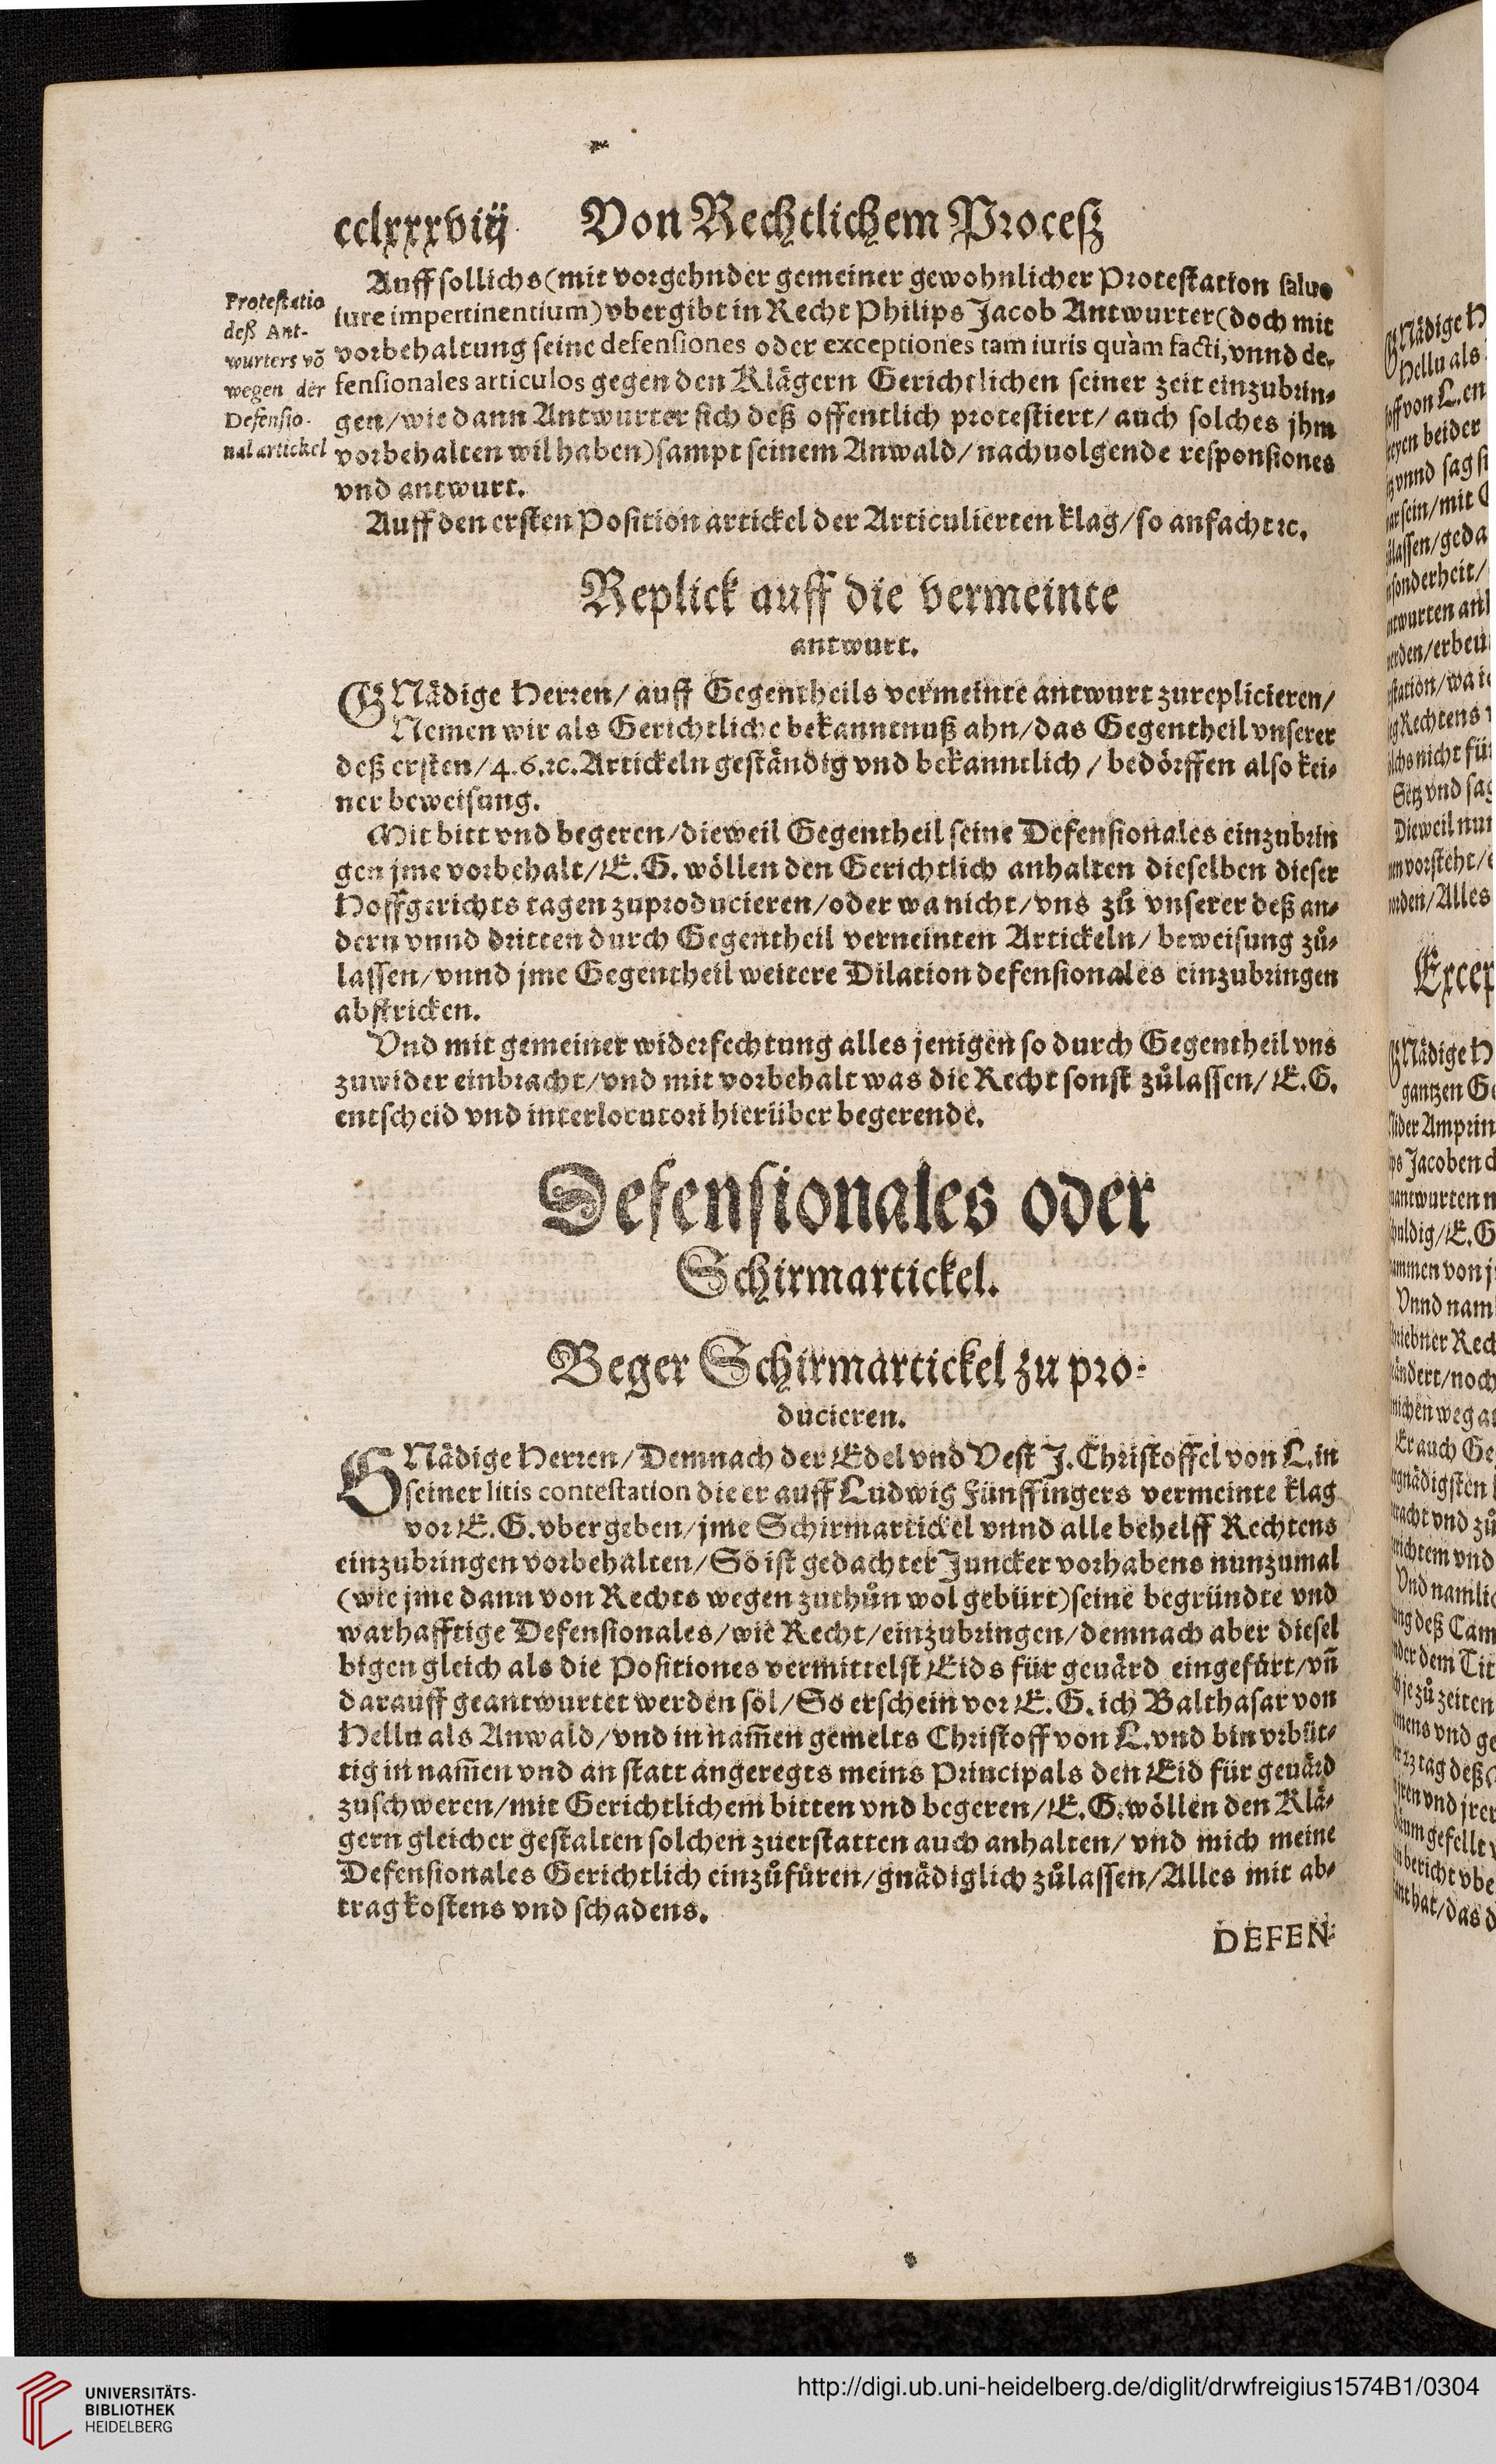 cclxxxviij Von Rechtlichem Proceß
Protestatio
deß Ant-
wurters võ
wegen der
Defensio-
nal artickel
Auff sollichs (mit vorgehnder gemeiner gewohnlicher Protestation saluo
iure impertinentium) vbergibt in Recht Philips Jacob Antwurter (doch mit
vorbehaltung seine defensiones oder exceptiones tam iuris quàm facti, vnnd de-
fensionales articulos gegen den Klägern Gerichtlichen seiner zeit einzubrin-
gen/ wie dann Antwurter sich deß offentlich protestiert/ auch solches jhm
vorbehalten wil haben) sampt seinem Anwald/ nachuolgende responsiones
vnd antwurt.
Auff den ersten Position artickel der Articulierten klag/ so anfacht ꝛc.
Replick auff die vermeinte
antwurt.
GNädige Herren/ auff Gegentheils vermeinte antwurt zureplicieren/
Nemen wir als Gerichtliche bekanntnuß ahn/ das Gegentheil vnserer
deß ersten/ 4. 6. ꝛc. Artickeln geständig vnd bekanntlich/ bedörffen also kei-
ner beweisung.
Mit bitt vnd begeren/ dieweil Gegentheil seine Defensionales einzubrin
gen jme vorbehalt/ E. G. wöllen den Gerichtlich anhalten dieselben dieser
Hoffgerichts tagen zuproducieren/ oder wa nicht/ vns zů vnserer deß an-
dern vnnd dritten durch Gegentheil verneinten Artickeln/ beweisung zů-
lassen/ vnnd jme Gegentheil weitere Dilation defensionales einzubringen
abstricken.
Vnd mit gemeiner widerfechtung alles jenigen so durch Gegentheil vns
zuwider einbracht/ vnd mit vorbehalt was die Recht sonst zůlassen/ E. G.
entscheid vnd interlocutori hierüber begerende.
Defensionales oder
Schirmartickel.
Beger Schirmartickel zu pro-
ducieren.
GNädige Herren/ Demnach der Edel vnd Vest J. Christoffel von L. in
seiner litis contestation die er auff Ludwig Fünffingers vermeinte klag
vor E. G. vbergeben/ jme Schirmartickel vnnd alle behelff Rechtens
einzubringen vorbehalten/ So ist gedachter Juncker vorhabens nunzumal
(wie jme dann von Rechts wegen zuthůn wol gebürt) seine begründte vnd
warhafftige Defensionales/ wie Recht/ einzubringen/ demnach aber diesel
bigen gleich als die Positiones vermittelst Eids für geuärd eingefürt/ vñ
darauff geantwurtet werden sol/ So erschein vor E. G. ich Balthasar von
Hellu als Anwald/ vnd in nam̃en gemelts Christoff von L. vnd bin vrbüt-
tig in nam̃en vnd an statt angeregts meins Principals den Eid für geuärd
zuschweren/ mit Gerichtlichem bitten vnd begeren/ E. G. wöllen den Klä-
gern gleicher gestalten solchen zuerstatten auch anhalten/ vnd mich meine
Defensionales Gerichtlich einzůfüren/ gnädiglich zůlassen/ Alles mit ab-
trag kostens vnd schadens.
DEFEN-
UNIVERSITÄTS-
BIBLIOTHEK
HEIDELBERG
http://digi.ub.uni-heidelberg.de/diglit/drwfreigius1574B1/0304